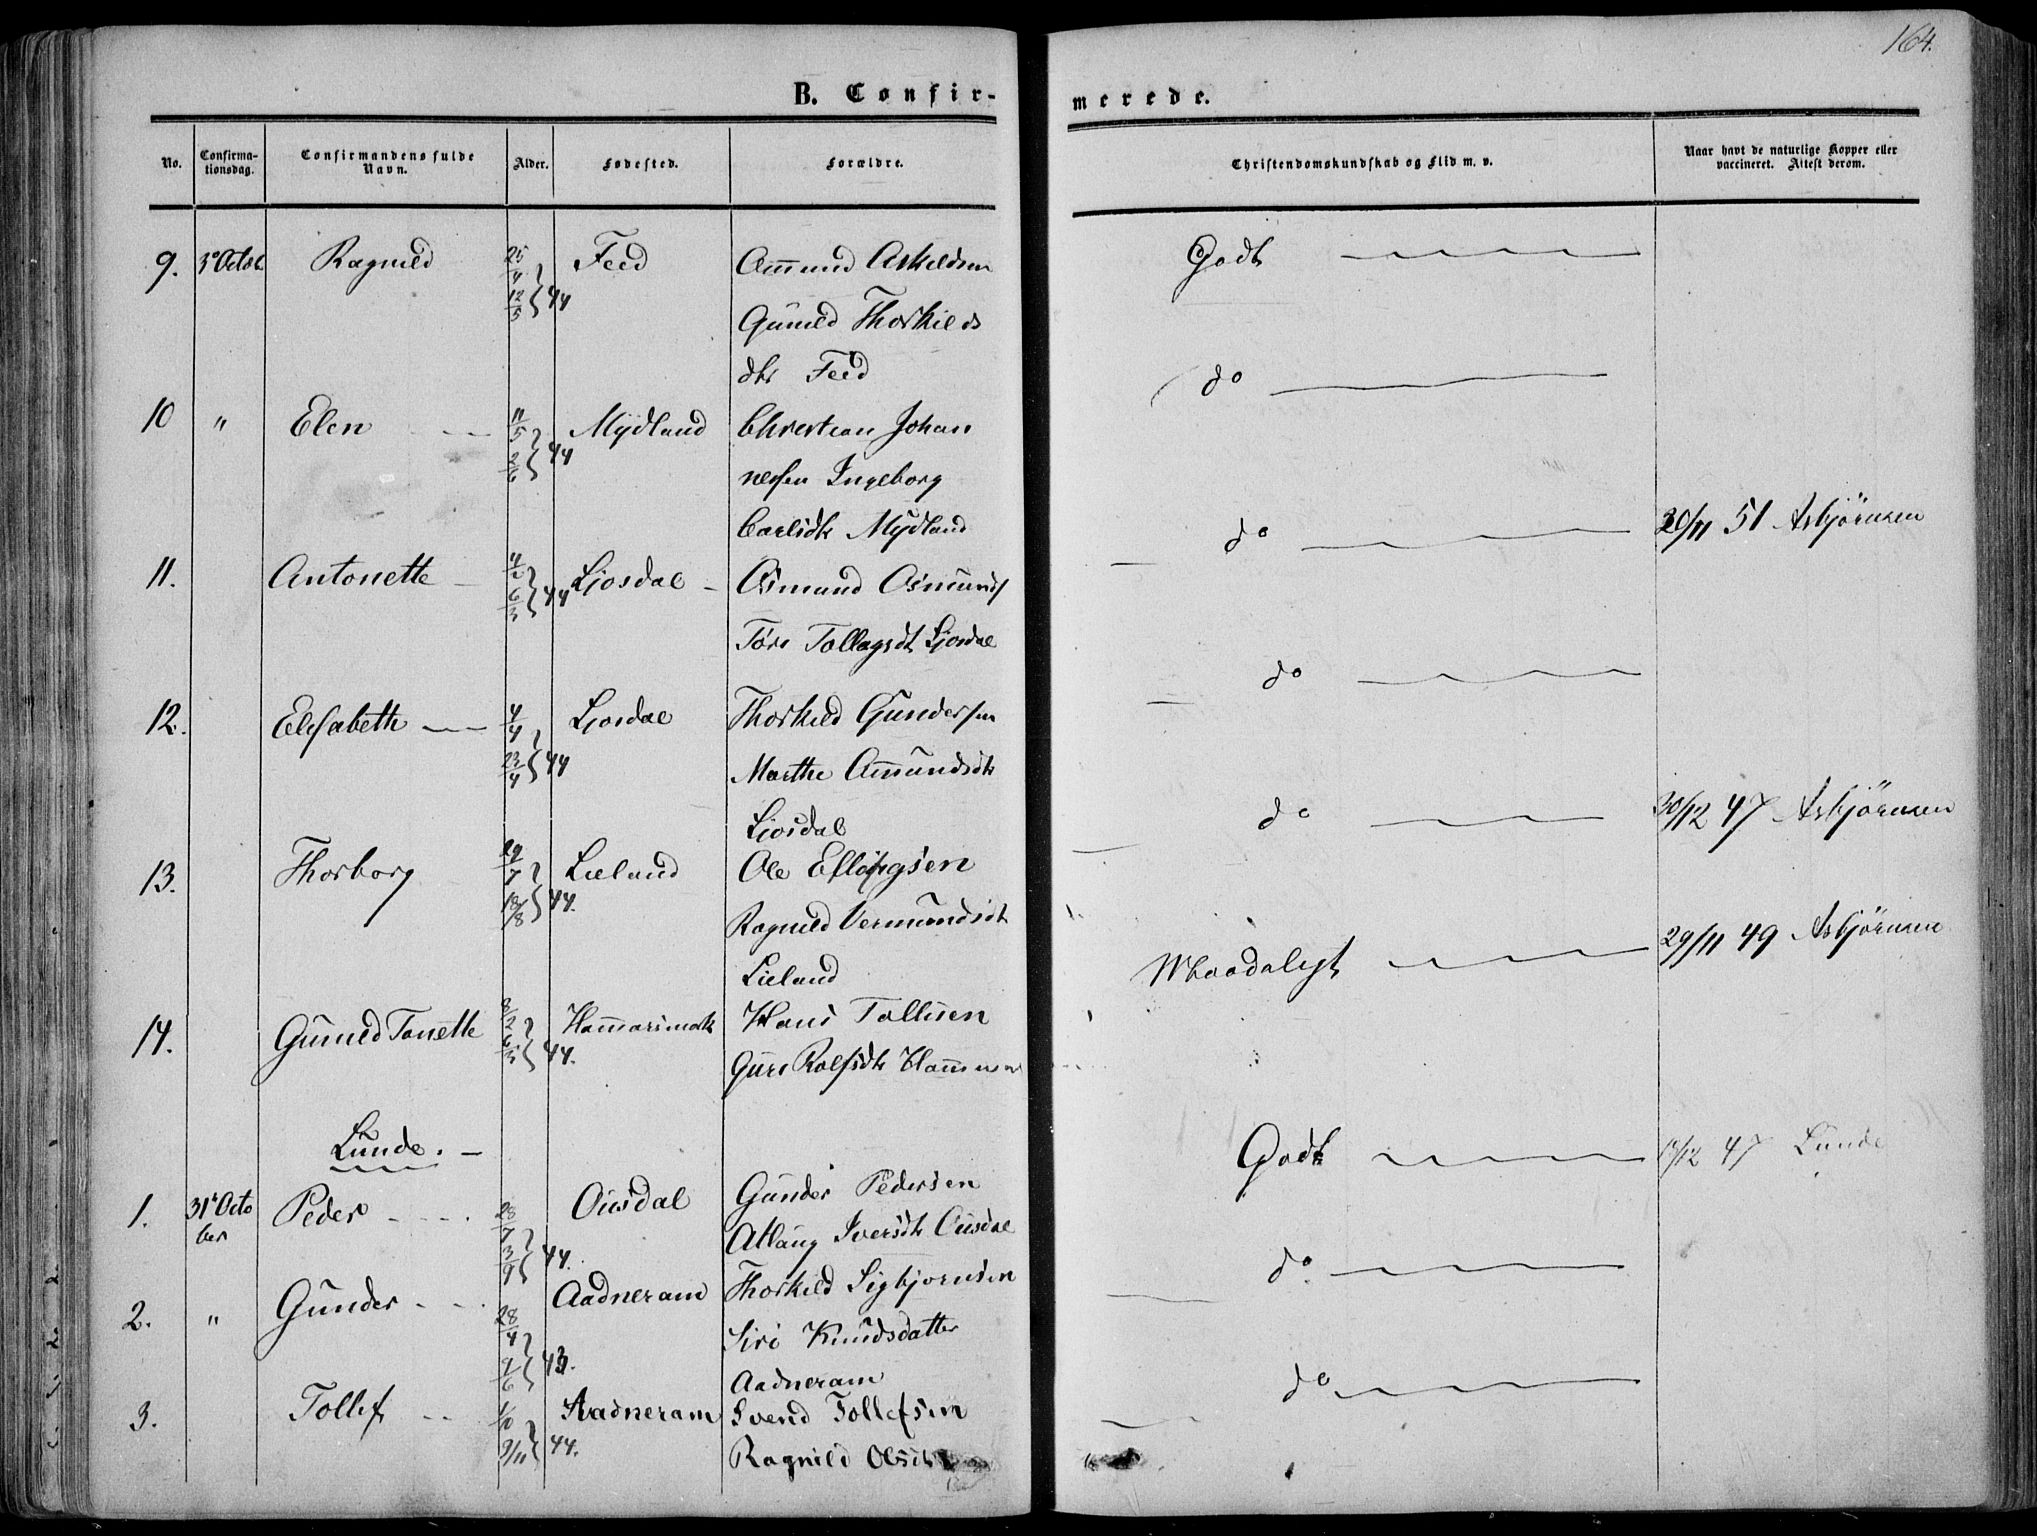 164.
B. Confir-
merede.
No.
Confirma-
tionsdag.
Confirmandens fulde
Navn.
Alder.
Fødested.
Forældre.
Christendomskundskab og Flid m. v.
Naar havt de naturlige Kopper eller
vaccineret. Attest derom.
9. 3º Octob Ragnild 25/4 12/5 44 Feed Amund Askeldsen
Gunild Thorkilds
dtr Feed
Godt
10 " Elen 11/5 2/6 44 Mydland Christian Johan
nessen Ingeborg
Carlsdtr Mydland
do
11. Antonette 11/2 6/3 44 Ljosdal Osmund Osmunds
Tore Tollagsdt Ljosdal
do
20/11 51 Asbjørnsen
12. Elisabeth 4/4 23/4 44 Ljosdal Thorkild Gundersen
Marthe Amundsdt
Ljosdal
do
13. Thorborg 29/7 18/8 44. Lieland Ole
Ragnild Vermundsdt
Lieland
do
30/12 47 Asbjørnsen
14. Gunild Tonette 8/2 6/3 44. Hammersmark Hans Tollisen
Guro Rolfsdtr
Maadeligt
29/11 49 Asbjørnsen
Lunde.
1. 31t Octo
ber
Peder 28/7 3/9 44. Ousdal Gunder Pedersen
Atlaug Iversdt Ousdal
Godt
/12 47 Lunde
2. " Gunder 28/4 9/6 43. Aadneram Thorkild Sigbjornsen
Siri Knudsdatter
Aadneram
do.
3. Tollef 1/10 3/11 44. Aadneram Svend Tollefsen
Ragnild Olsdt
do